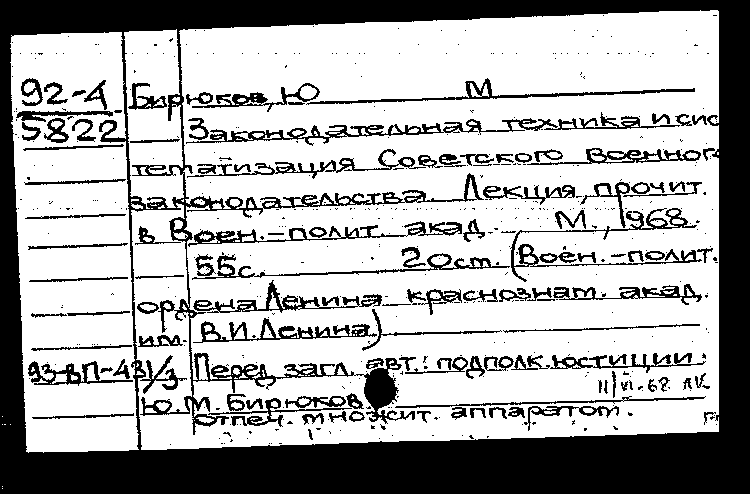 92-4 Бирюков, Ю М
5822 Законодательная техника и сис
тематизация Советского Военного
законодательства. Лекция, прочит.
в Воен.-полит. акад. М., 1968.
55с. 20ст. (Воен.-полит.
ордена Ленина краснознам. акад.
им. В.И.Ленина)
93-ВП-431/3 Перед загл. авт.: подполк. юстиции
Ю.М. Бирюков 11/VI-68
отпеч. множит. аппаратом.